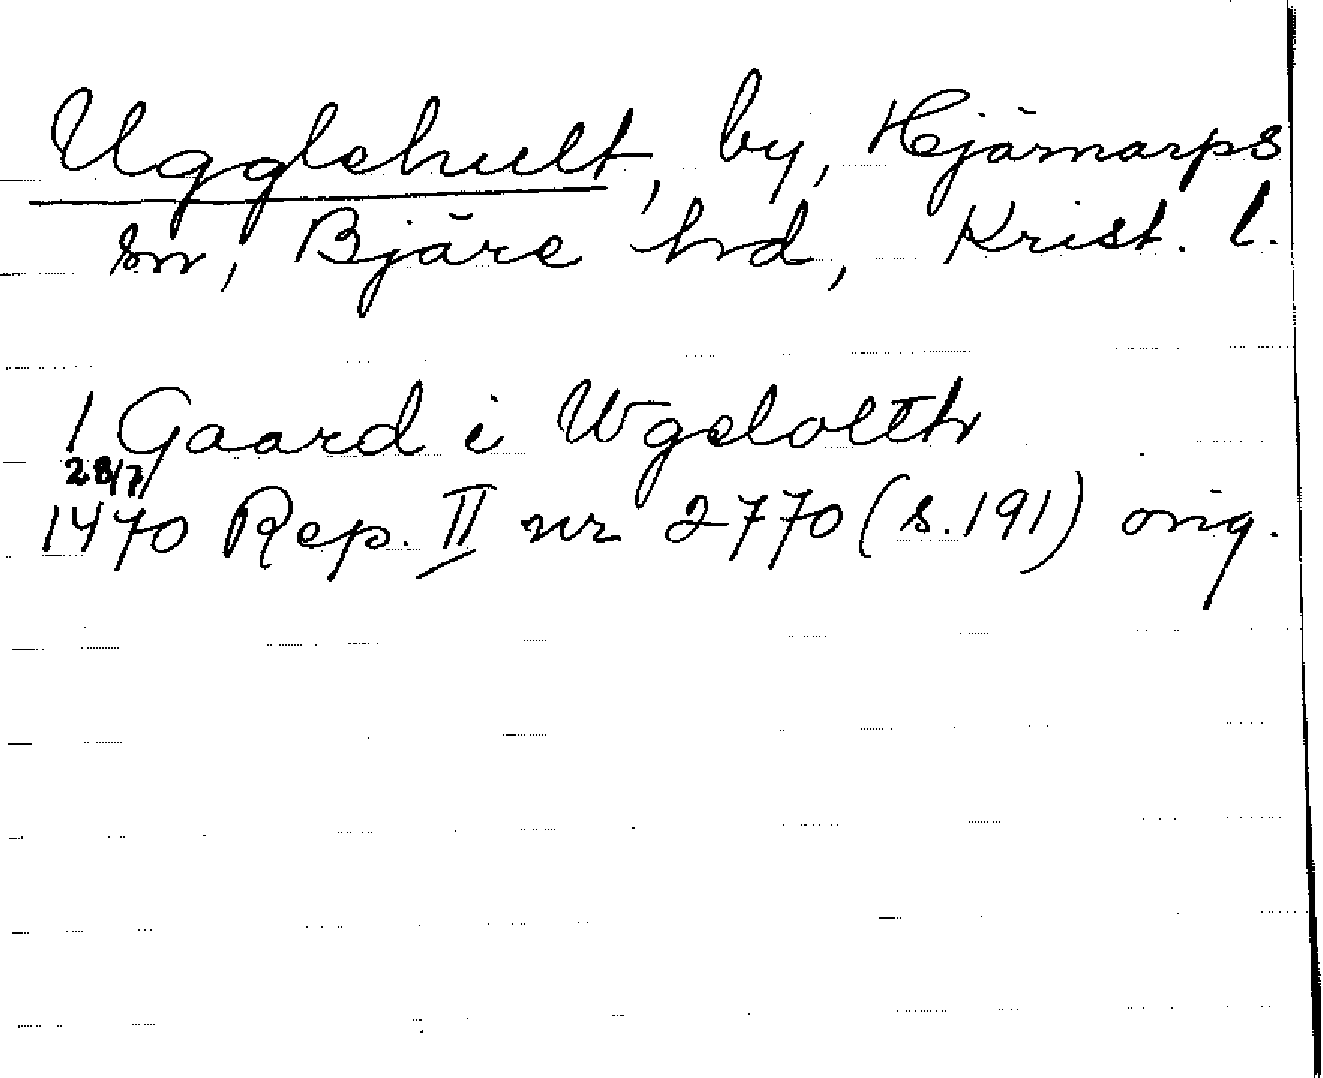 Ugglehult, by, Hjärnarps
sn, Bjäre hd, Krist. l.
1 Gaard i Wgeloltth
28/7
1470 Rep. II nr 2770 (s. 191) orig.